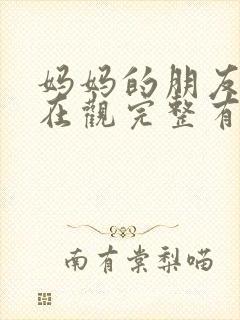 妈妈的朋友
在觀完整有
南有棠梨喵